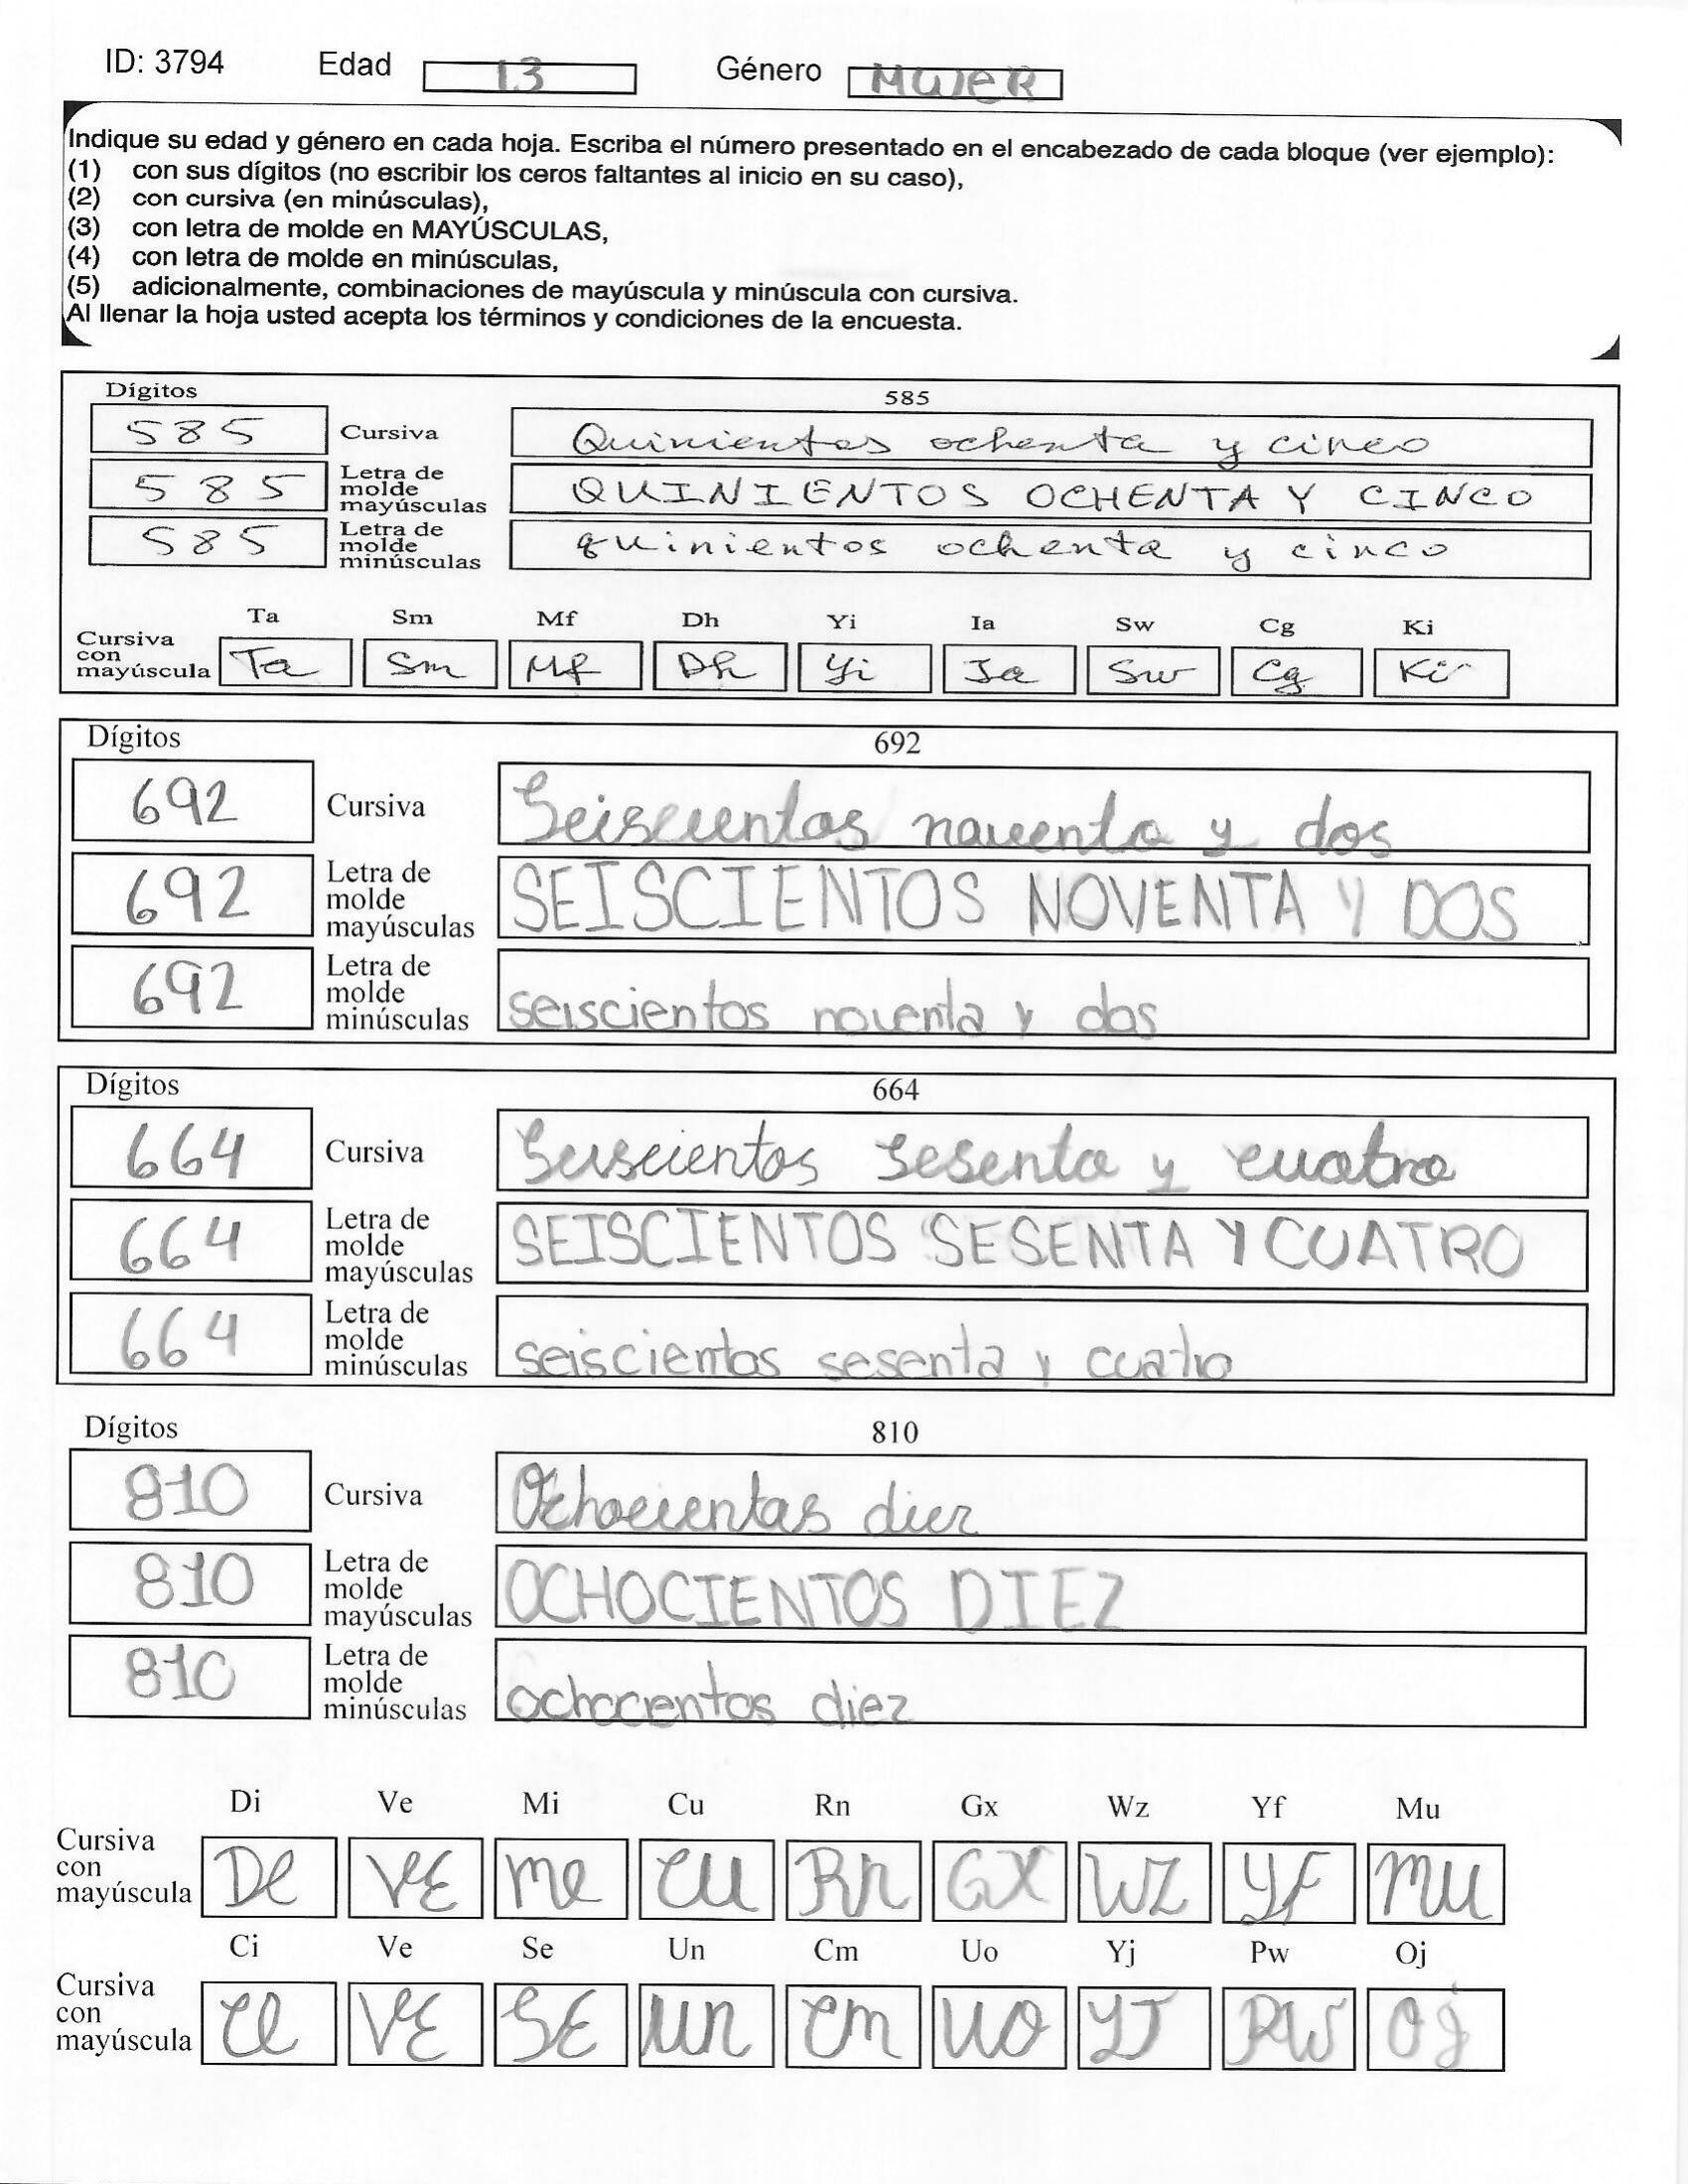 ID: 3794 Edad 13 Género MUJER
Indique su edad y género en cada hoja. Escriba el número presentado en el encabezado de cada bloque (ver ejemplo):
(1) con sus dígitos (no escribir los ceros faltantes al inicio en su caso),
(2) con cursiva (en minúsculas),
(3) con letra de molde en MAYÚSCULAS,
(4) con letra de molde en minúsculas,
(5) adicionalmente, combinaciones de mayúscula y minúscula con cursiva.
Al llenar la hoja usted acepta los términos y condiciones de la encuesta.
Dígitos 585
585 Cursiva Quinientos ochenta y cinco
585 Letra de molde mayúsculas QUINIENTOS OCHENTA Y CINCO
585 Letra de molde minúsculas quinientos ochenta y cinco
Ta Sm Mf Dh Yi Ia Sw Cg Ki
Cursiva con mayúscula Ta Sm Mf Dh Yi Ia Sw Cg Ki
Dígitos 692
692 Cursiva Seiscientos noventa y dos
692 Letra de molde mayúsculas SEISCIENTOS NOVENTA Y DOS
692 Letra de molde minúsculas seiscientos noventa y dos
Dígitos 664
664 Cursiva Seiscientos sesenta y cuatro
664 Letra de molde mayúsculas SEISCIENTOS SESENTA Y CUATRO
664 Letra de molde minúsculas seiscientos sesenta y cuatro
Dígitos 810
810 Cursiva Ochocientos diez
810 Letra de molde mayúsculas OCHOCIENTOS DIEZ
810 Letra de molde minúsculas ochocientos diez
Di Ve Mi Cu Rn Gx Wz Yf Mu
Cursiva con mayúscula Di VE mi CU Rn GX WZ Yf MU
Ci Ve Se Un Cm Uo Yj Pw Oj
Cursiva con mayúscula Ci VE SE Un Cm UO YJ PW Oj